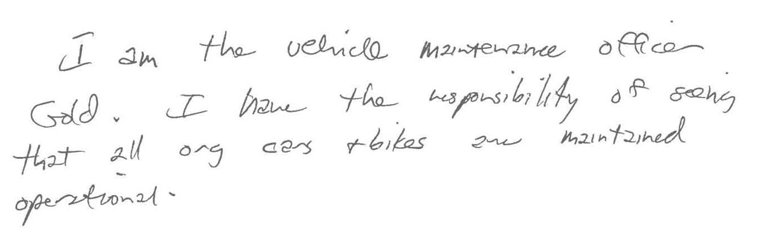 I am the vehicle maintenance officer
Gold. I have the responsibility of seeing
that all org cars + bikes are maintained
operational.